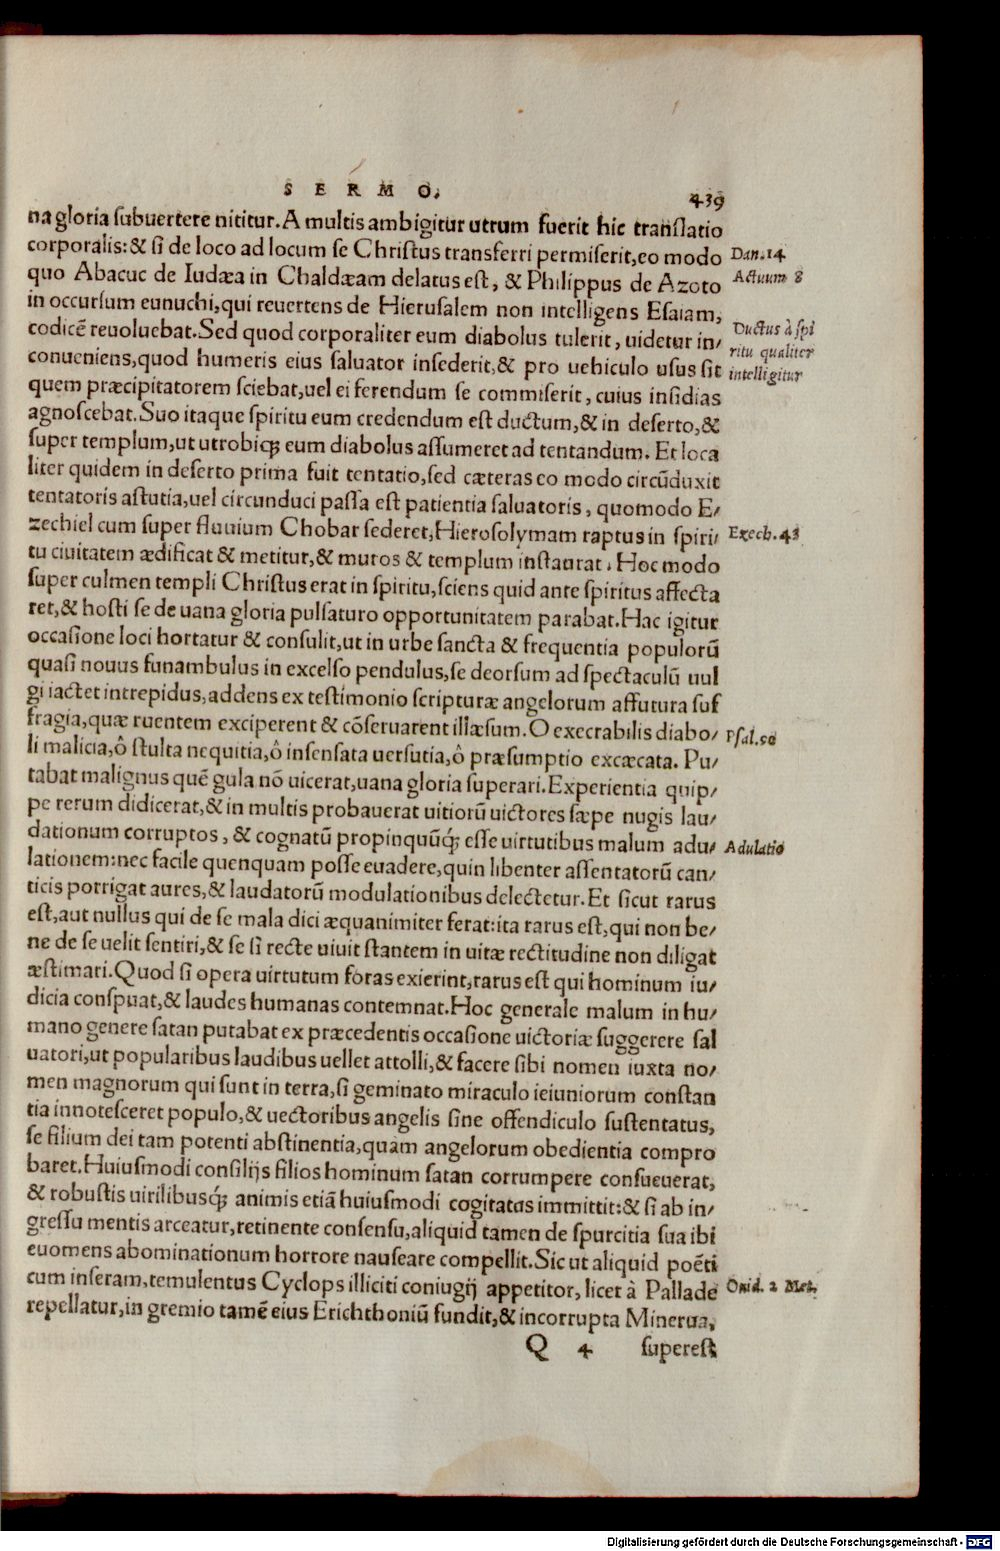 S E R M O. 439
na gloria ſubuertere nititur. A multis ambigitur utrum fuerit hic tranſlatio
corporalis: & ſi de loco ad locum ſe Chriſtus transferri permiſerit, eo modo
Dan. 14
quo Abacuc de Iudæa in Chaldæam delatus eſt, & Philippus de Azoto
Actuum 8
in occurſum eunuchi, qui reuertens de Hieruſalem non intelligens Eſaiam,
codicē reuoluebat. Sed quod corporaliter eum diabolus tulerit, uidetur in/
Ductus à ſpi
conueniens, quod humeris eius ſaluator inſederit, & pro uehiculo uſus ſit
ritu qualiter
quem præcipitatorem ſciebat, uel ei ferendum ſe commiſerit, cuius inſidias
intelligitur
agnoſcebat. Suo itaque ſpiritu eum credendum eſt ductum, & in deſerto, &
ſuper templum, ut utrobiq; eum diabolus aſſumeret ad tentandum. Et loca
liter quidem in deſerto prima fuit tentatio, ſed cæteras eo modo circūduxit
tentatoris aſtutia, uel circunduci paſſa eſt patientia ſaluatoris, quomodo E/
zechiel cum ſuper fluuium Chobar ſederet, Hieroſolymam raptus in ſpiri/
Ezech. 43
tu ciuitatem ædificat & metitur, & muros & templum inſtaurat. Hoc modo
ſuper culmen templi Chriſtus erat in ſpiritu, ſciens quid ante ſpiritus affecta
ret, & hoſti ſe de uana gloria pulſaturo opportunitatem parabat. Hac igitur
occaſione loci hortatur & conſulit, ut in urbe ſancta & frequentia populorū
quaſi nouus funambulus in excelſo pendulus, ſe deorſum ad ſpectaculū uul
gi iactet intrepidus, addens ex teſtimonio ſcripturæ angelorum affutura ſuf
fragia, quæ ruentem exciperent & cōſeruarent illæſum. O execrabilis diabo/
Pſal. 90
li malicia, ô ſtulta nequitia, ô inſenſata uerſutia, ô præſumptio excæcata. Pu/
tabat malignus quē gula nō uicerat, uana gloria ſuperari. Experientia quip/
pe rerum didicerat, & in multis probauerat uitiorū uictores ſæpe nugis lau/
dationum corruptos, & cognatū propinquūq; eſſe uirtutibus malum adu/
Adulatio
lationem: nec facile quenquam poſſe euadere, quin libenter aſſentatorū can/
ticis porrigat aures, & laudatorū modulationibus delectetur. Et ſicut rarus
eſt, aut nullus qui de ſe mala dici æquanimiter ferat: ita rarus eſt, qui non be/
ne de ſe uelit ſentiri, & ſe ſi recte uiuit ſtantem in uitæ rectitudine non diligat
æſtimari. Quod ſi opera uirtutum foras exierint, rarus eſt qui hominum iu/
dicia conſpuat, & laudes humanas contemnat. Hoc generale malum in hu/
mano genere ſatan putabat ex præcedentis occaſione uictoriæ ſuggerere ſal
uatori, ut popularibus laudibus uellet attolli, & facere ſibi nomen iuxta no/
men magnorum qui ſunt in terra, ſi geminato miraculo ieiuniorum conſtan
tia innoteſceret populo, & uectoribus angelis ſine offendiculo ſuſtentatus,
ſe filium dei tam potenti abſtinentia, quam angelorum obedientia compro
baret. Huiuſmodi conſilijs filios hominum ſatan corrumpere conſueuerat,
& robuſtis uirilibusq; animis etiā huiuſmodi cogitatus immittit: & ſi ab in/
greſſu mentis arceatur, retinente conſenſu, aliquid tamen de ſpurcitia ſua ibi
euomens abominationum horrore nauſeare compellit. Sic ut aliquid poëti
cum inſeram, temulentus Cyclops illiciti coniugij appetitor, licet à Pallade
Ouid. 2 Met.
repellatur, in gremio tamē eius Erichthoniū fundit, & incorrupta Minerua,
Q 4 ſupereſt
Digitalisierung gefördert durch die Deutsche Forschungsgemeinschaft - DFG